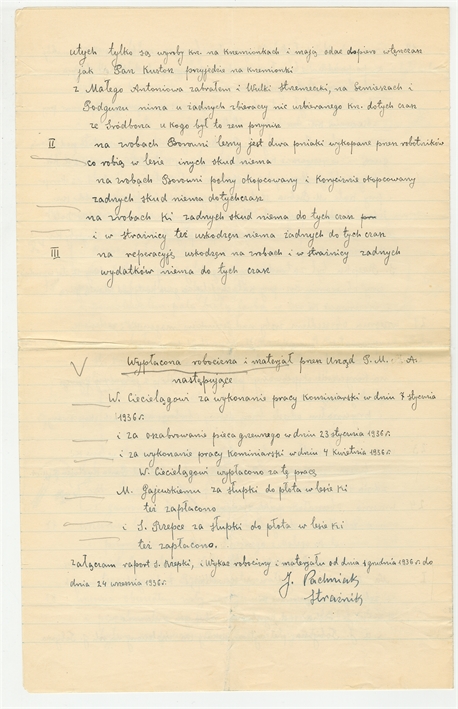 utych tylko są wyroby kr. na Kremionkach i mają odac dopiero wtenczas
jak Pan Kustosz przyjedzie na Kremionki
z Małego Antoniowa zabrałem i Wulki Strzemeckiej, na Semieszach i
Podgurzu nima u żadnych zbieraczy nic uzbieranego kr. dotych czas
ze Śródborza u kogo był to zem przynius
II na zrobach Borowni lesny jest dwa pniaki wykopane przez robotników
co robią w lesie inych skud niema
na zrobach Borowni polny okopcowany i Korycizna okopcowany
żadnych skud niema dotychczas
na zrobach Ki żadnych skud niema do tych czas
i w strażnicy też uskodzeń niema żadnych do tych czas
III na reperacyję uskodzeń na zrobach i w strażnicy żadnych
wydatków niema do tych czas
V Wypłacona robocizna i materjał przez Urząd P. M. A.
następujące
W. Ciecielągowi za wykonanie pracy Kominiarski w dniu 7 stycznia
1936 r.
i za oszabrowanie pieca grzewnego w dniu 23 stycznia 1936 r.
i za wykonanie pracy Kominiarski w dniu 4 Kwietnia 1936 r.
W. Ciecielągowi wypłacono za tę pracę
M. Gajewskiemu za słupki do płota w lesie Ki
też zapłacono
i S. Rzepce za słupki do płota w lesie Ki
też zapłacono.
załączam raport S. Rzepki, i Wykaz robocizny i materjału od dnia 1 grudnia 1936 r. do
dnia 24 września 1936 r.
J. Pachniak
Strażnik